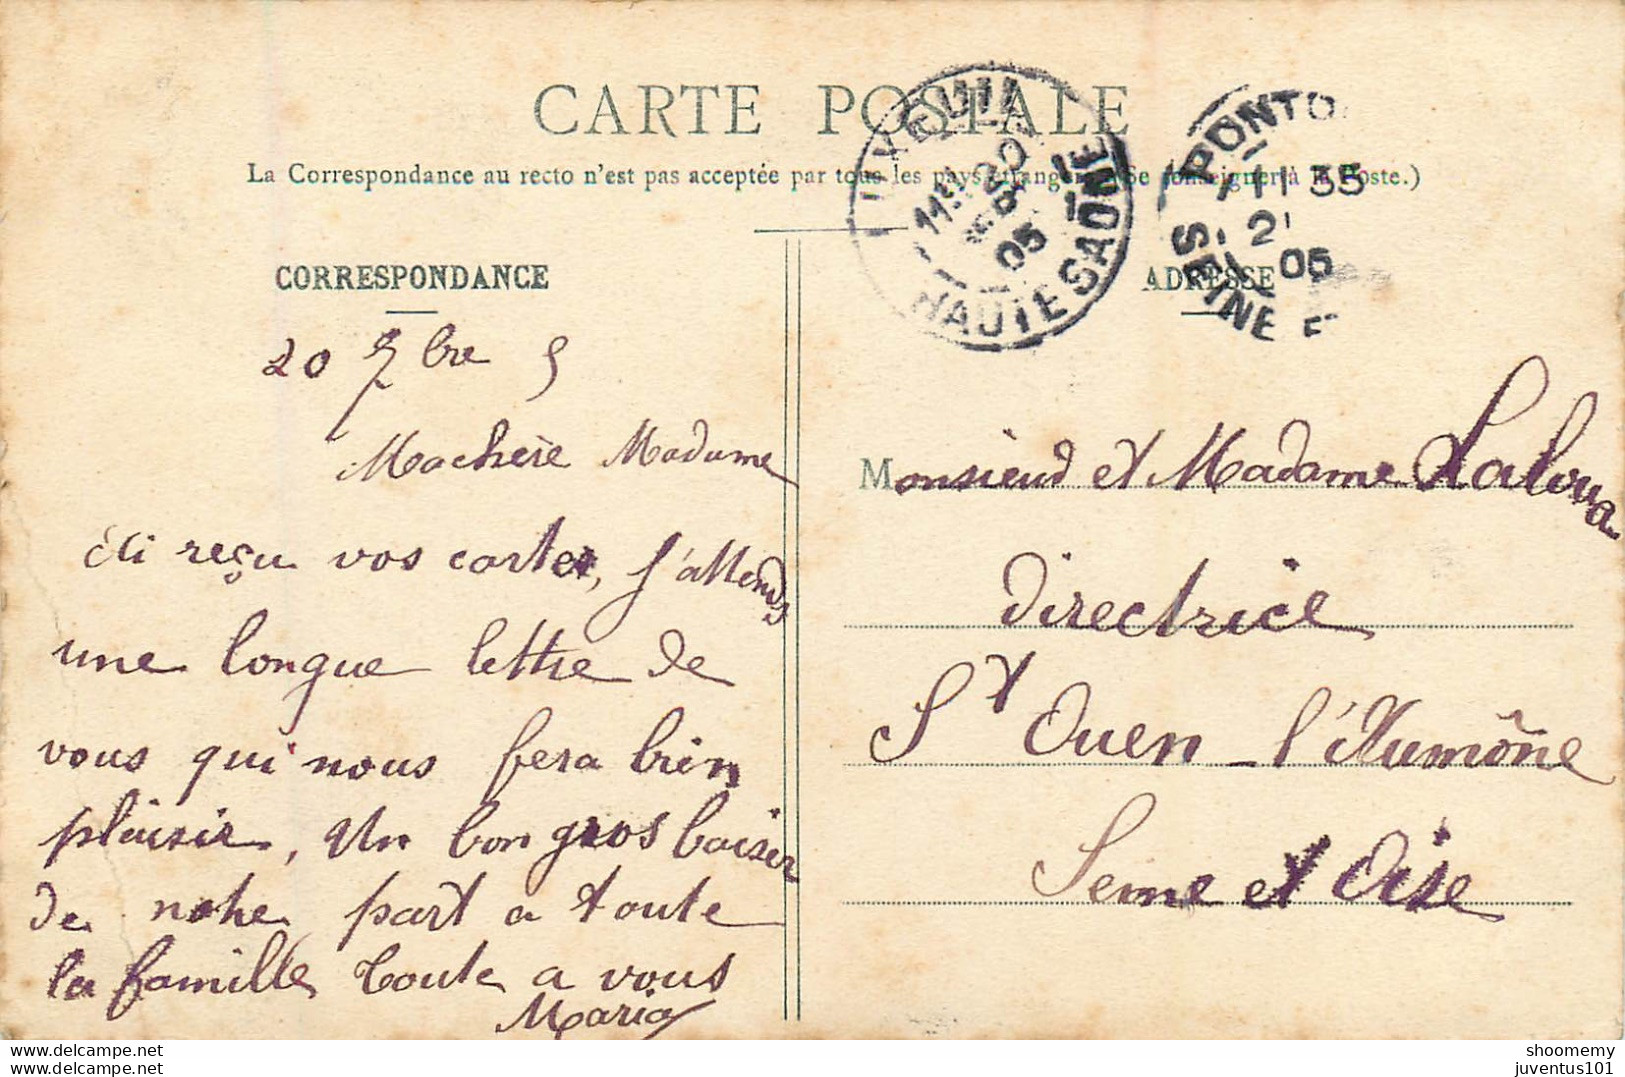 CARTE POSTALE
La Correspondance au recto n'est pas acceptée par tous les pays étrangers (Se renseigner à la Poste.)
CORRESPONDANCE
20 7bre 5
Machère Madame
Ai reçu vos cartes, j'attends
une longue lettre de
vous qui nous fera bien
plaisir, Un bon gros baiser
de notre part a toute
la famille Toute a vous
Maria
LUXEUIL
11 35
20
05
HAUTE SAONE
PONTO
11 35
2
05
SEINE E
ADRESSE
Monsieur et Madame
Directrice
St Ouen - l'Aumône
Seine et Oise
shoomemy
juventus101